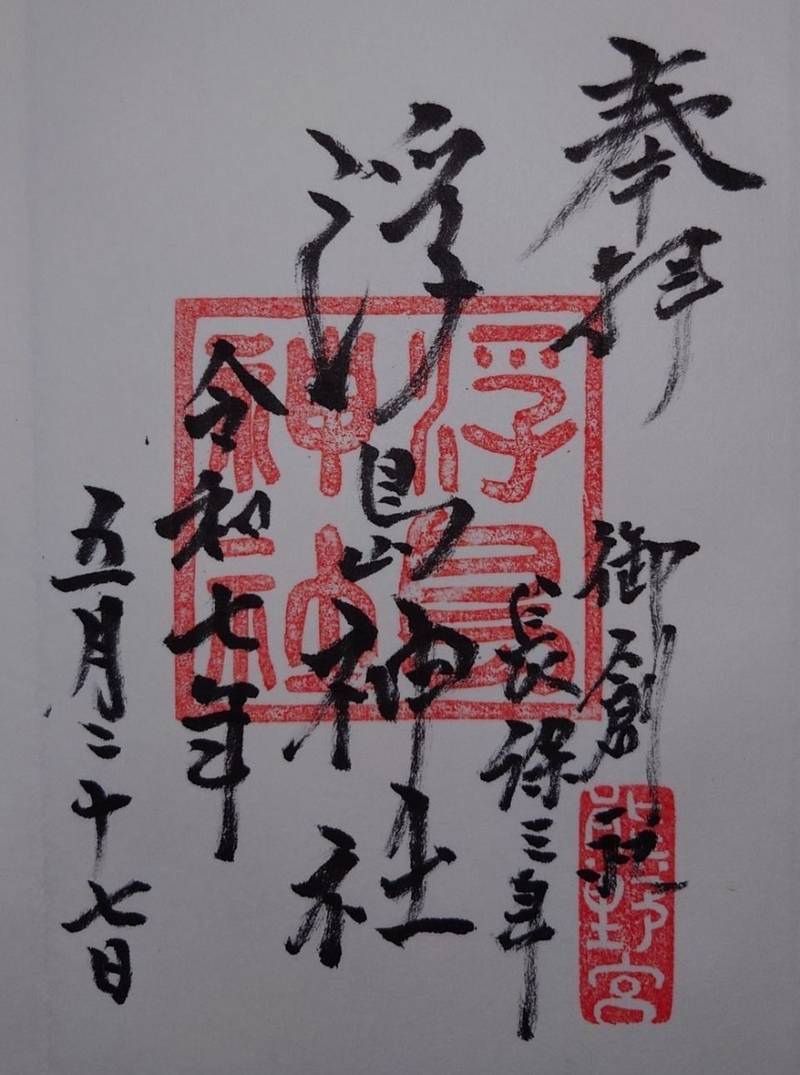 奉拝
御創祀
長保三年
浮島神社
令和七年
五月二十七日
浮島
神社
熊野宮